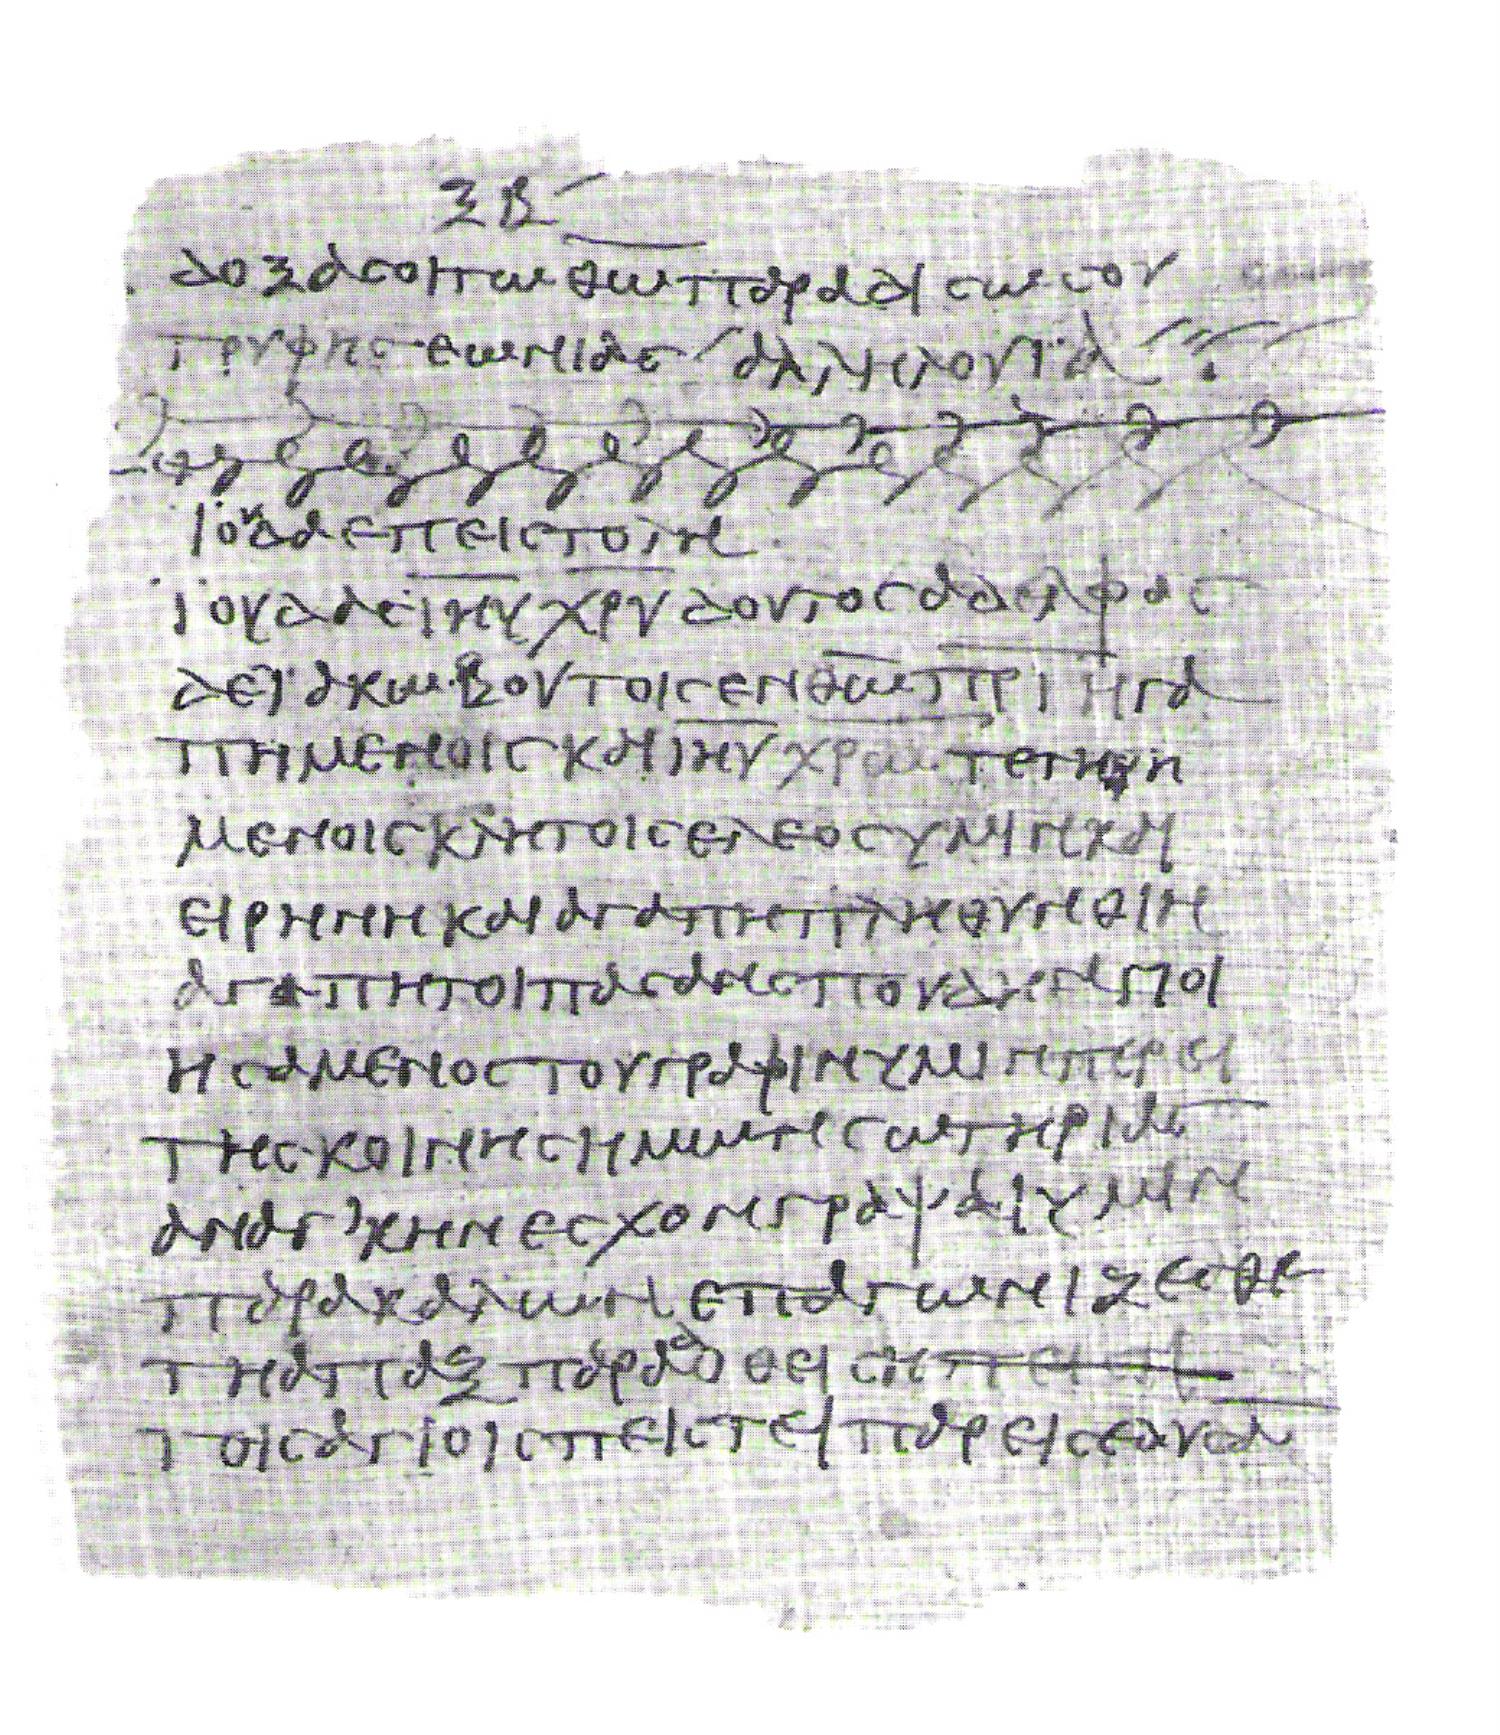 ξβ
δοξα σοι τω θω παραδισω σου
τρυφης εωνιας αλληλουϊα
ϊουδα επειστολη
ϊουδας ιηυ χρυ δουλος αδελφος
δε ϊακωβου τοις εν θω πρι ηγα
πημενοις και ιηυ χρω τετηρη
μενοις κλητοις ελεος υμιν και
ειρηνη και αγαπη πληθυνθιη
αγαπητοι πασαν σπουδην ποι
ησαμενος του γραφιν υμιν περι
της κοινης ημων σωτηριας
αναγκην εσχον γραψαι υμιν
παρακαλων επαγωνιζεσθε
τη απαξ παραδοθειση
τοις αγιοις πειστει παρεισεδυσα